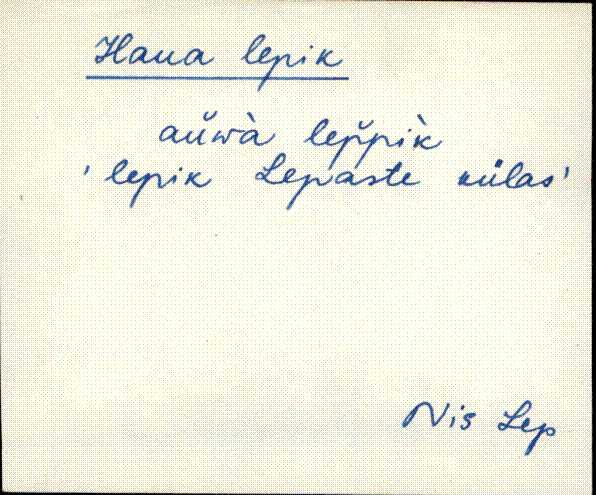 Haua lepik
aŭwà lep̆pìk
' lepik Lepaste külas'
Nis Lep